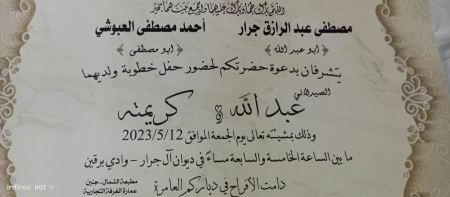 اللهم بارك لهما وبارك عليهما واجمع بينهما بخير
مصطفى عبد الرازق جرار أحمد مصطفى العبوشي
﴿ ابو عبد الله ﴾ ﴿ ابو مصطفى ﴾
يتشرفان بدعوة حضرتكم لحضور حفل خطوبة ولديهما
الصيدلاني
عبد الله & كريمته
وذلك بمشيئته تعالى يوم الجمعة الموافق 2023/5/12
ما بين الساعة الخامسة والسابعة مساءً في ديوان آل جرار - وادي برقين
دامت الأفراح في دياركم العامرة
مطبعة الشمال - جنين
عمارة الغرفة التجارية
Infinix HOT